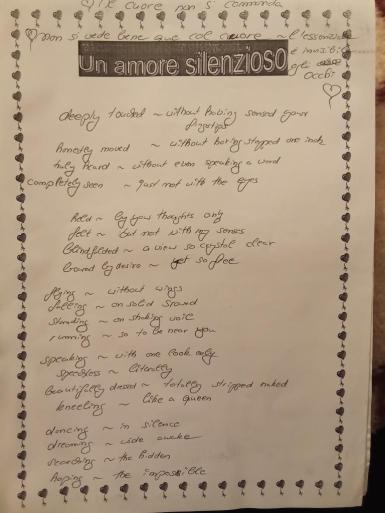 Il cuore non si commanda
non si vede bene que col cuore ~ l'essenziale
è invisibile
Un amore silenzioso
agli
occhi
deeply touched ~ without having sensed your
fingertips
honestly moved ~ without having stepped one inch
truly heard ~ without even speaking a word
completely seen ~ just not with the eyes
held ~ by your thoughts only
felt ~ but not with my senses
blindfolded ~ a view so crystal clear
bound by desire ~ yet so free
flying ~ without wings
falling ~ on solid ground
standing ~ on shaking
running ~ so to be near you
speaking ~ with one look only
speechless ~ literally
beautifully dressed ~ totally stripped naked
kneeling ~ like a queen
dancing ~ in silence
dreaming ~ wide awake
searching ~ the hidden
hoping ~ the impossible